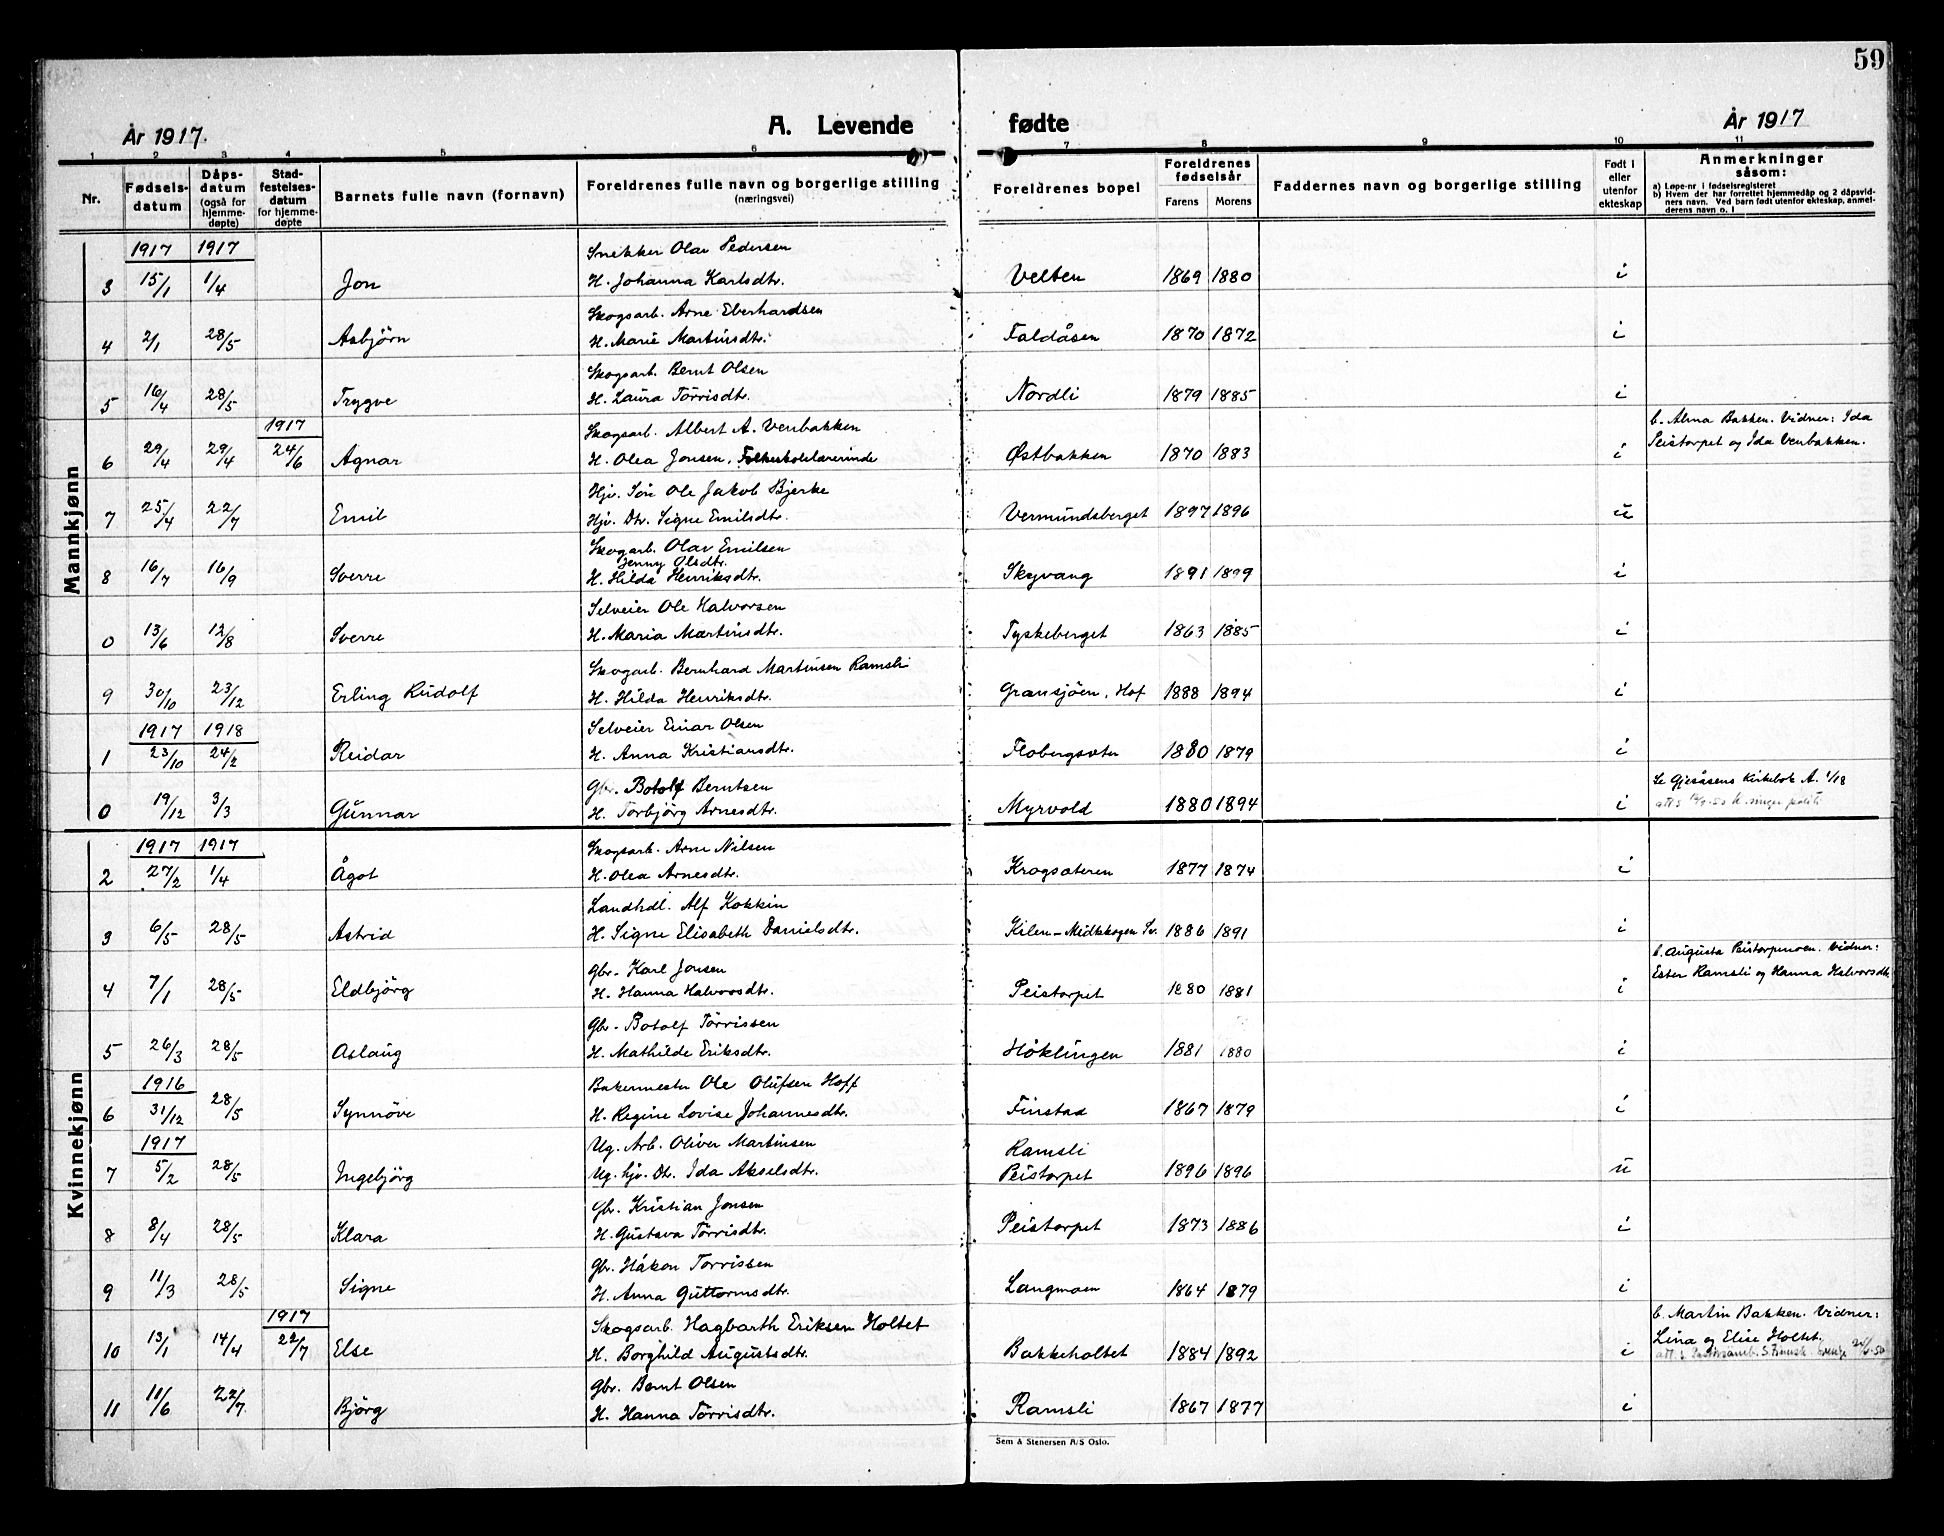 59
År 1917.
A. Levende fødte
År 1917
1 2 3 4 5 6 7 8 9 10 11
Nr.
Fødsels-
datum
Dåps-
datum
(også for
hjemme-
døpte)
Stad-
festelses-
datum
for hjemme-
døpte
Barnets fulle navn (fornavn)
Foreldrenes fulle navn og borgerlige stilling
(næringsvei)
Foreldrenes bopel
Foreldrenes
fødselsår
Farens Morens
Faddernes navn og borgerlige stilling
Født i
eller
utenfor
ekteskap
Anmerkninger
såsom:
a) Løpe-nr i fødselsregisteret
b) Hvem der har forrettet hjemmedåp og 2 dåpsvid-
ners navn. Ved barn født utenfor ekteskap, anmel-
derens navn o. l
Mannkjønn
1917 1917 Snekker Olav Pedersen
3 15/1 1/4 Jon H. Johanna Karlsdtr. Velten 1869 1880 i
Skogsarb. Arne Eberhardsen
4 2/1 28/5 Asbjörn H. Marie Martinsdtr. Faldåsen 1870 1872 i
Skogsarb. Bernt Olsen
5 16/4 28/5 Trygve H. Laura Törrisdtr. Nordli 1879 1885 i
1917 Skogsarb. Albert A. Venbakken b. Alma Bakken. Vidner: Ida
6 29/4 29/4 24/6 Agnar H. Olea Jonsen, Folkeskolelærerinde Østbakken 1870 1883 i Peistorpet og Ida Venbakken.
Hjv. Sön Ole Jakob Bjerke
7 25/4 22/7 Emil Hjv. Dtr. Signe Emilsdtr. Vermundsberget 1897 1896 u
Skogarb. Olav Emilsen
Jenny Olsdtr.
8 16/7 16/9 Sverre H. Hilda Henriksdtr. Skyvang 1891 1899 i
Selveier Ole Halvorsen
0 13/6 12/8 Sverre H. Maria Martinsdtr. Tyskeberget 1863 1885 i
Skogarb. Bernhard Martinsen Ramsli
9 30/10 23/12 Erling Rudolf H. Hilda Henriksdtr. Gransjöen, Hof 1888 1894 i
1917 1918 Selveier Einar Olsen
1 23/10 24/2 Reidar H. Anna Kristiansdtr. Flobergsæter 1880 1879 i
Gbr. Botolf Berntsen Se Gjesåsens Kirkebok A. 1/18
0 19/12 3/3 Gunnar H. Torbjörg Arnesdtr. Myrvold 1880 1894 i
Kvinnekjønn
1917 1917 Skogsarb. Arne Nilsen
2 27/2 1/4 Ågot H. Olea Arnesdtr. Krogsæteren 1877 1874 i
Landhdl. Alf Kokkin
3 6/5 28/5 Astrid H. Signe Elisabeth Danielsdtr. Kilen-Midtskogen Sv. 1886 1891 i
Gbr. Karl Jonsen b. Augusta Peistorpmoen. Vidner:
4 7/1 28/5 Eldbjörg H. Hanna Halvorsdtr. Peistorpet 1880 1881 i Ester Ramsli og Hanna Halvorsdtr.
Gbr. Botolf Törrissen
5 26/3 28/5 Aslaug H. Mathilde Eriksdtr. Höklingen 1881 1880 i
1916 Bakermester Ole Olufsen Hoff
6 31/12 28/5 Synnöve H. Regine Lovise Johannesdtr. Finstad 1867 1879 i
1917 Ug. Arb. Oliver Martinsen Ramsli
7 5/2 28/5 Ingebjörg Ug. hjv. Dtr. Ida Akselsdtr. Peistorpet 1896 1896 u
Gbr. Kristian Jonsen
8 8/4 28/5 Klara H. Gustava Törrisdtr. Peistorpet 1873 1886 i
Gbr. Håkon Torrissen
9 11/3 28/5 Signe H. Anna Guttormsdtr. Langmoen 1864 1879 i
1917 Skogsarb. Hagbarth Eriksen Holtet b. Martin Bakken. Vidner:
10 13/1 14/4 22/7 Else H. Borghild Augustsdtr. Bakkeholtet 1884 1892 i Lina og Elise Holtet.
Gbr. Bernt Olsen
11 11/6 22/7 Björg H. Hanna Törrisdtr. Ramsli 1867 1877 i
Sem & Stenersen A/S Oslo.